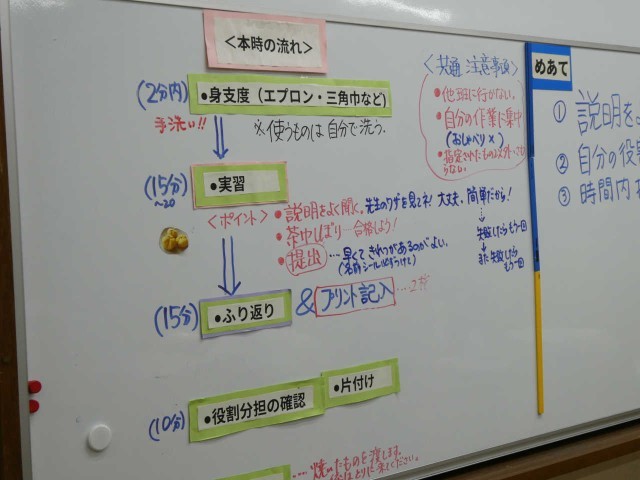 <本時の流れ>
(2分内)
●身支度（エプロン・三角巾など）
手洗い!!
※使うものは自分で洗う。
(15分)
~20
●実習
<ポイント>
●説明をよく聞く。先生のワザを見てネ! 大丈夫。簡単だから!
●茶巾しぼり…合格しよう!
失敗したらもう一回
また失敗したら
もう一回
●提出…早くてきれいがあるのがよい。
(15分)
●ふり返り
&プリント記入
(10分)
●役割分担の確認
●片付け
…焼いたものを渡します。
<共通 注意事項>
●他班に行かない。
●自分の作業に集中
(おしゃべり×)
●指定されたもの以外
めあて
① 説明を
② 自分の役
③ 時間内